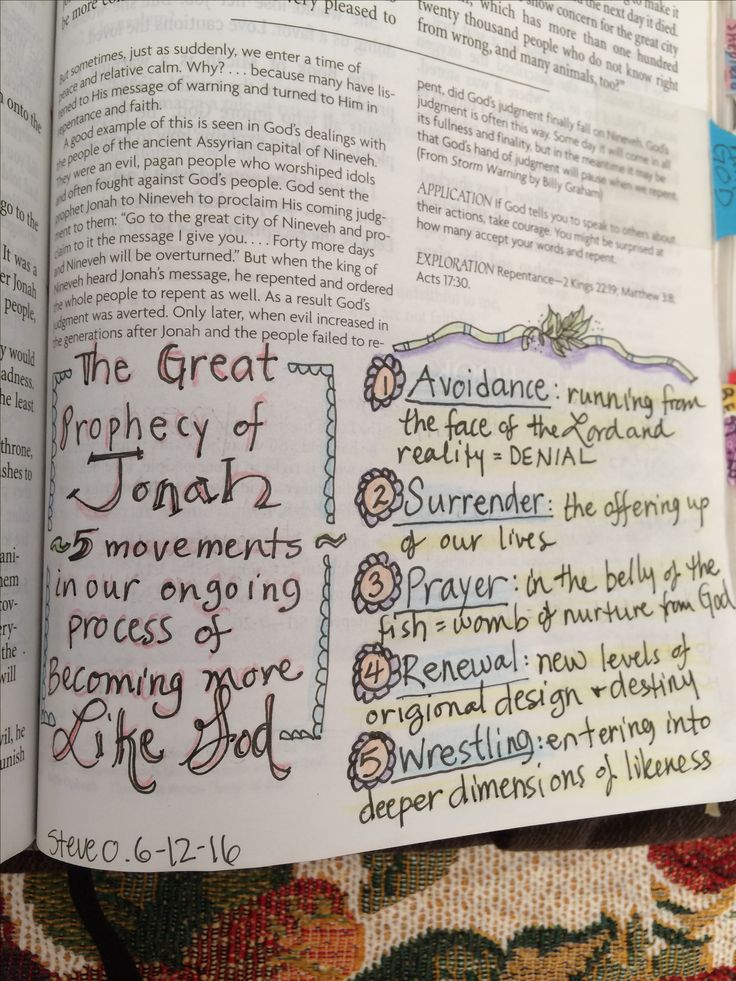 be more
ery pleased to
to make it
the next day it died.
now concern for the great city
which has more than one hundred
twenty thousand people who do not know right
from wrong, and many animals, too?"
But sometimes, just as suddenly, we enter a time of
peace and relative calm. Why? . . . because many have lis-
tened to His message of warning and turned to Him in
repentance and faith.
A good example of this is seen in God's dealings with
the people of the ancient Assyrian capital of Nineveh.
They were an evil, pagan people who worshiped idols
and often fought against God's people. God sent the
prophet Jonah to Nineveh to proclaim His coming judg-
ment to them: "Go to the great city of Nineveh and pro-
claim to it the message I give you. . . . Forty more days
and Nineveh will be overturned." But when the king of
Nineveh heard Jonah's message, he repented and ordered
the whole people to repent as well. As a result God's
judgment was averted. Only later, when evil increased in
the generations after Jonah and the people failed to re-
pent, did God's judgment finally fall on Nineveh. God's
judgment is often this way. Some day it will come in all
its fullness and finality, but in the meantime it may be
that God's hand of judgment will pause when we repent.
(From Storm Warning by Billy Graham)
APPLICATION If God tells you to speak to others about
their actions, take courage. You might be surprised at
how many accept your words and repent.
EXPLORATION Repentance—2 Kings 22:19; Matthew 3:8;
Acts 17:30.
The Great
Prophecy of
Jonah
~5 movements ~
in our ongoing
process of
Becoming more
Like God
1 Avoidance: running from
the face of the Lord and
reality = DENIAL
2 Surrender: the offering up
of our lives
3 Prayer: in the belly of the
fish = womb of nurture from God
4 Renewal: new levels of
origional design + destiny
5 Wrestling: entering into
deeper dimensions of likeness
Steve O. 6-12-16
onto the
go to the
It was a
er Jonah
people,
y would
adness.
he least
throne,
shes to
ani-
hem
cov-
ery-
the
will
vil, he
unish
GOD